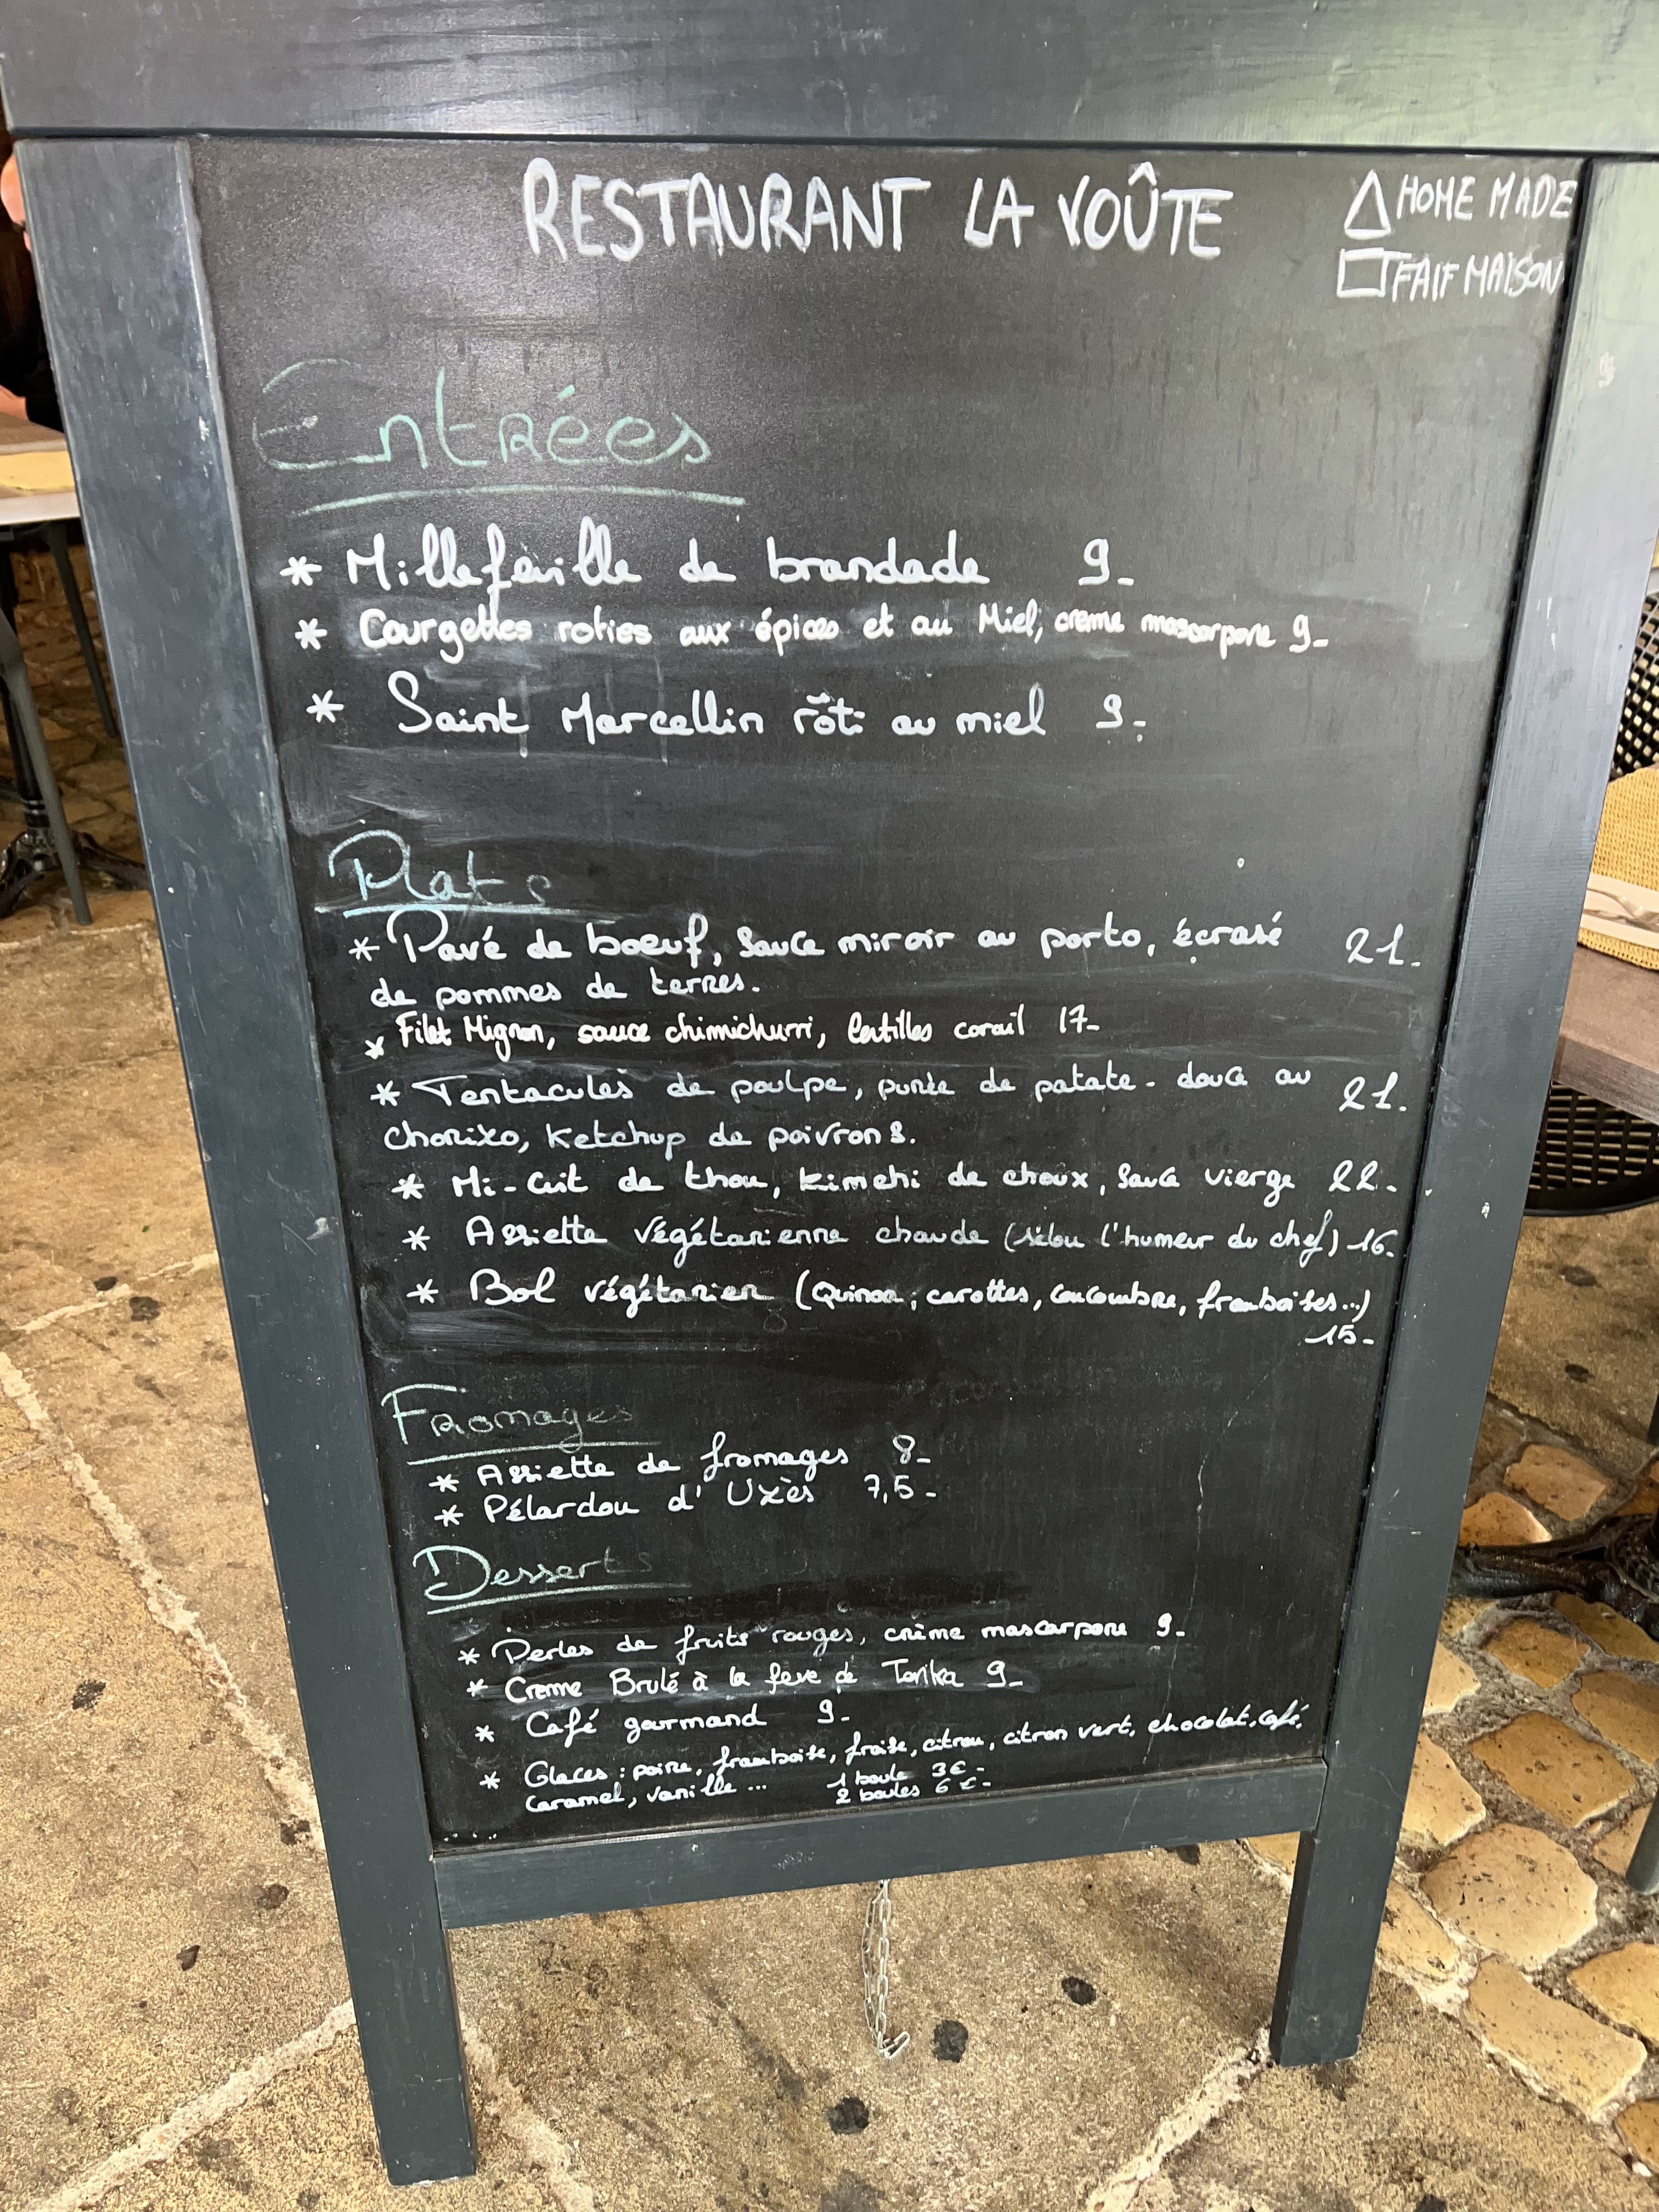 RESTAURANT LA VOÛTE
△ HOME MADE
□ FAIT MAISON
Entrées
* Millefeuille de brandade 9-
* Courgettes roties aux épices et au Miel, creme mascarpone 9-
* Saint Marcellin rôti au miel 9-
Plats
* Pavé de boeuf, sauce miroir au porto, écrasé 21-
de pommes de terres.
* Filet Mignon, sauce chimichurri, lentilles corail 17-
* Tentacules de poulpe, purée de patate-douce au 21.
chorizo, ketchup de poivrons.
* Mi-cuit de thon, kimchi de choux, sauce vierge 22-
* Assiette végétarienne chaude (selon l'humeur du chef) 16-
* Bol végétarien (Quinoa, carottes, concombre, framboises...)
15-
Fromages
* Assiette de fromages 8-
* Pélardon d'Uzès 7,5-
Desserts
* Perles de fruits rouges, crème mascarpone 9-
* Creme Brulé à la feve de Tonka 9-
* Café gourmand 9-
* Glaces : poire, framboise, fraise, citron, citron vert, chocolat, café,
caramel, vanille ... 1 boule 3€-
2 boules 6€-